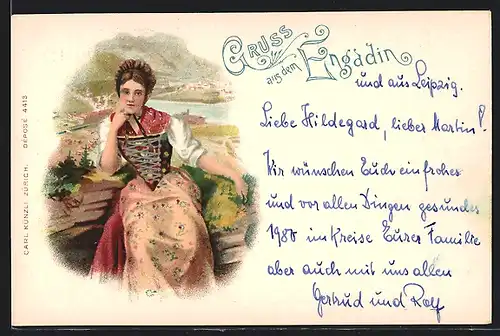 GRUSS
aus dem Engadin
und aus Leipzig.
Liebe Hildegard, lieber Martin!
Wir wünschen Euch ein frohes
und vor allen Dingen gesundes
1980 im Kreise Eurer Familie
aber auch mit uns allen
Gertrud und Rolf
CARL KÜNZLI ZÜRICH. DÉPOSÉ 4413